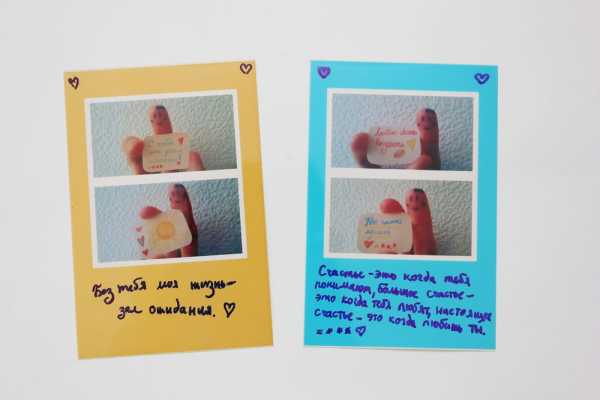 Без тебя моя жизнь–
зал ожидания. ♡
Любовь
Счастье -это когда тебя
понимают, большое счастье –
это когда тебя любят, настоящее
счастье – это когда любишь ты.